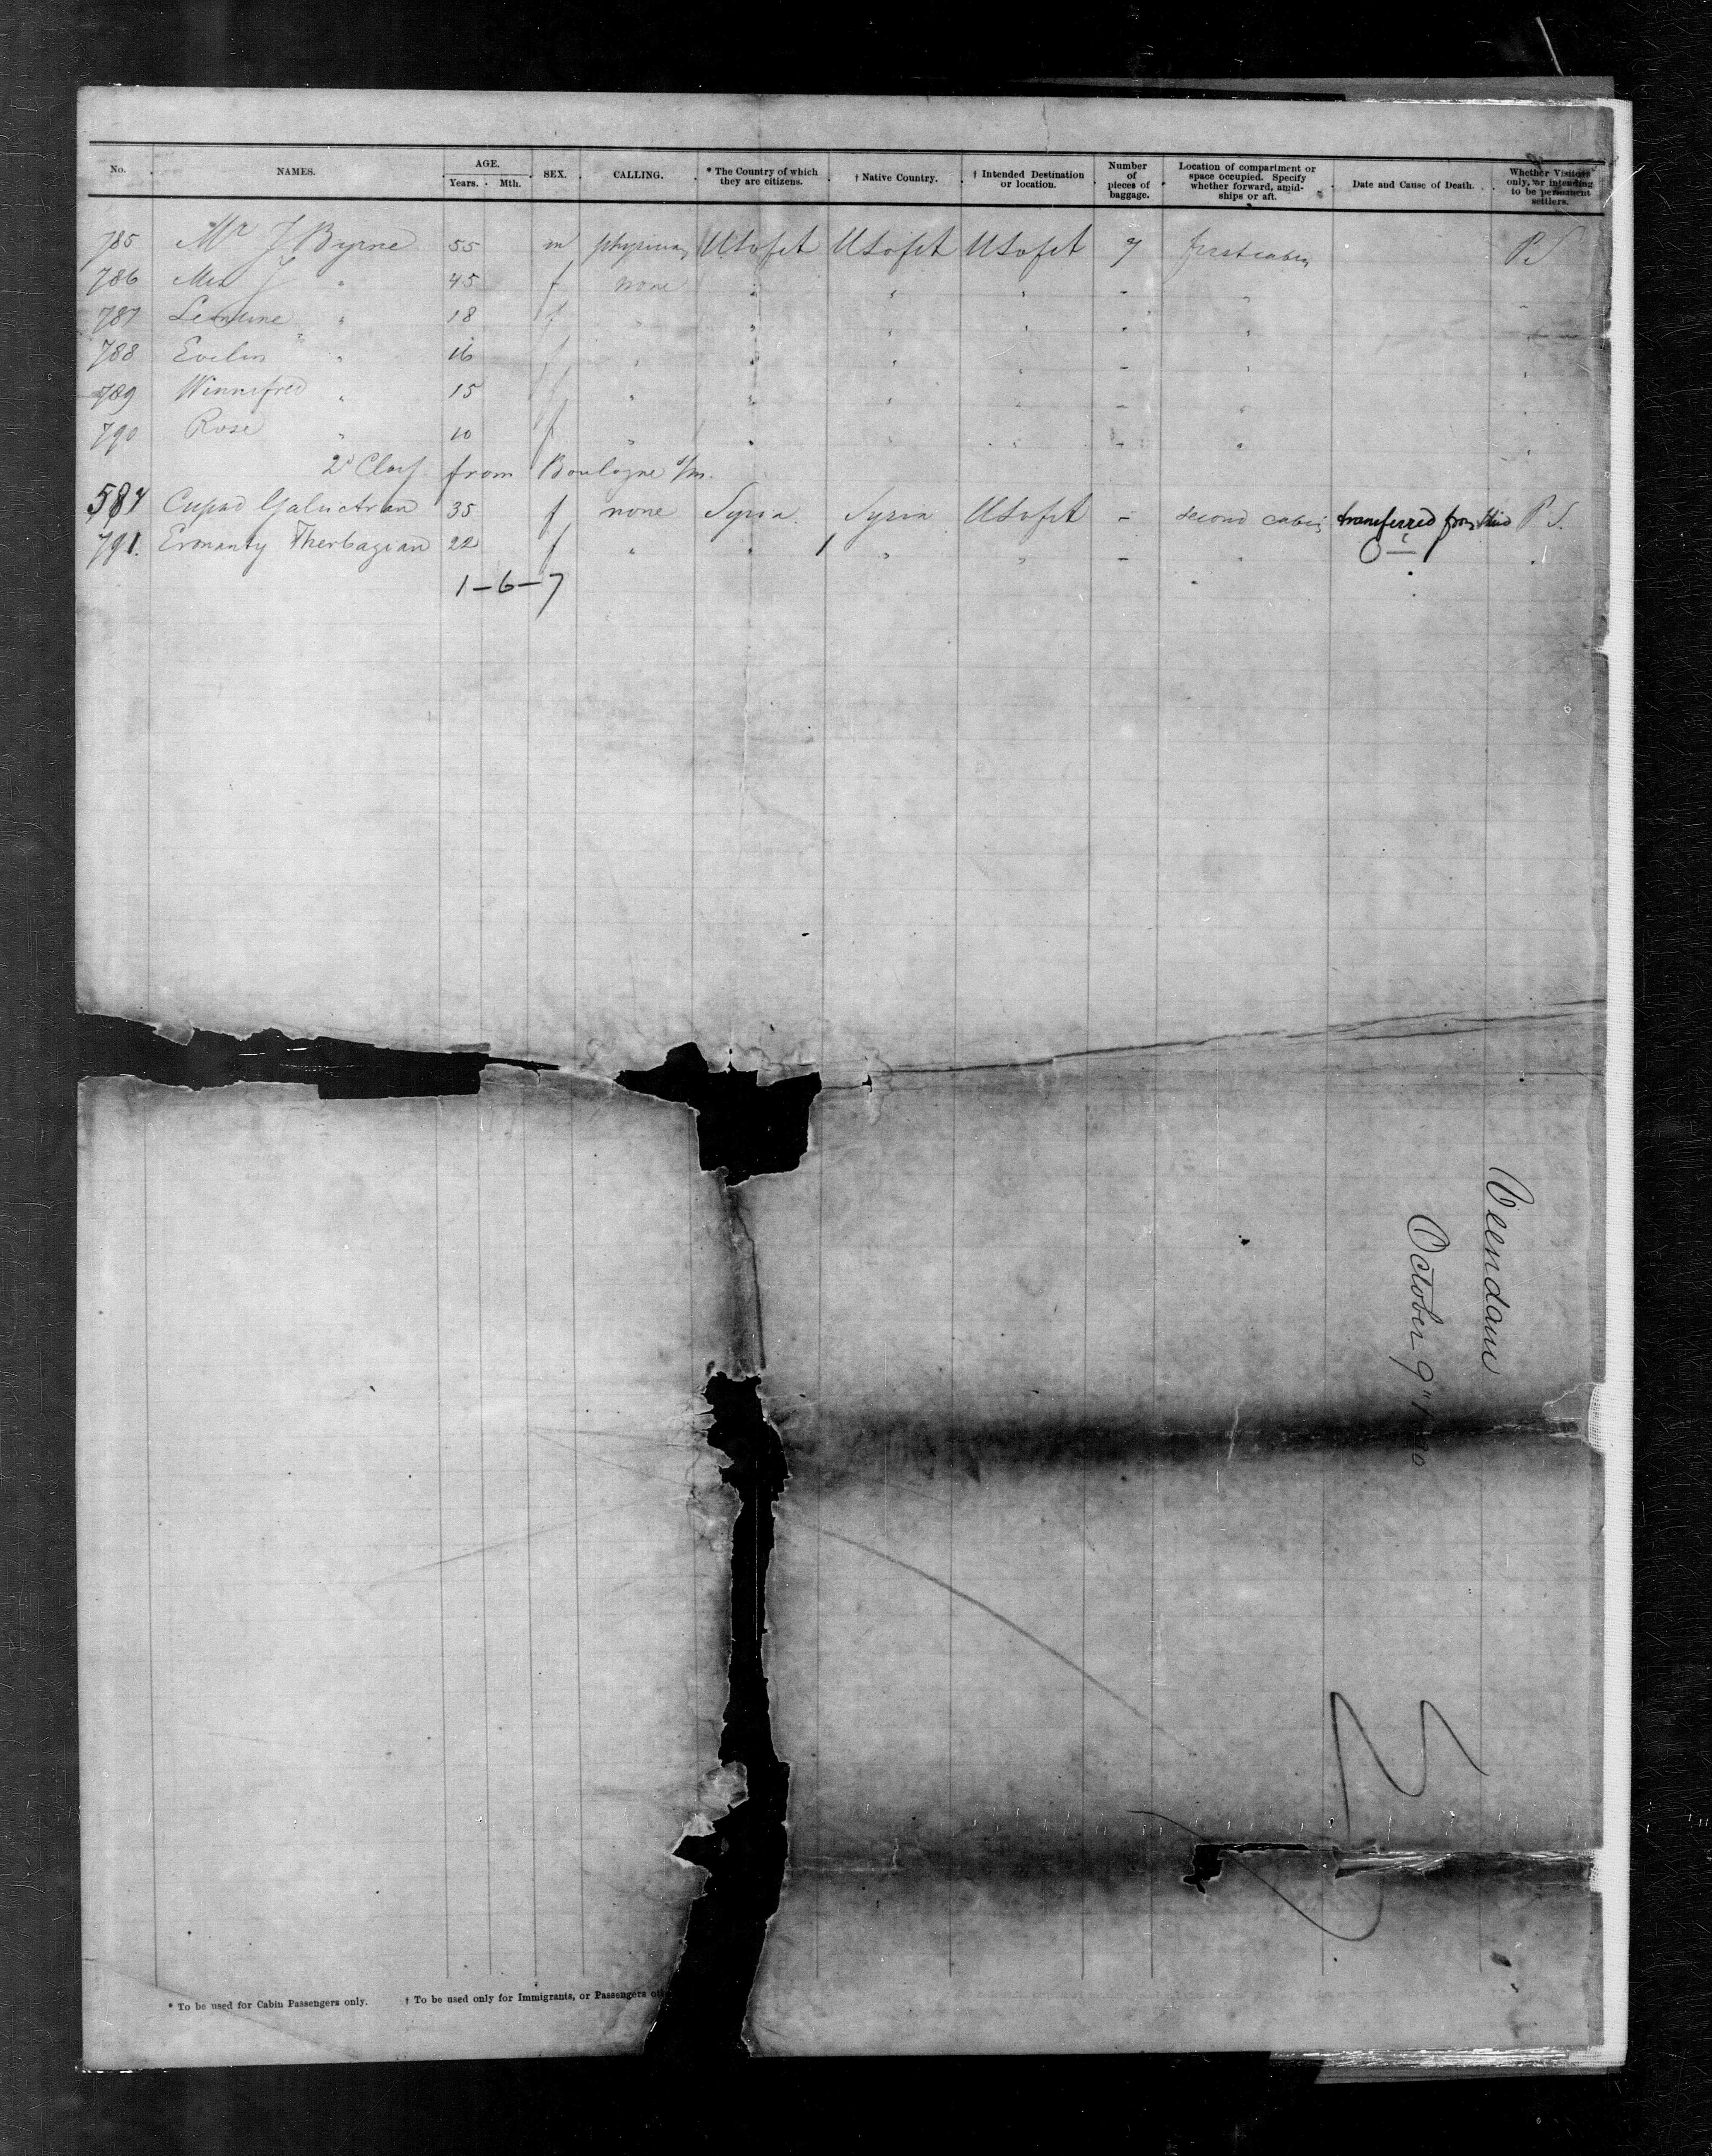 No. NAMES. AGE. Years. Mth. SEX. CALLING. * The Country of which they are citizens. † Native Country. † Intended Destination or location. Number of pieces of baggage. Location of compartment or space occupied. Specify whether forward, amidships or aft. Date and Cause of Death. Whether Visitors only, or intending to be permanent settlers.
785 Mr J Byrne 55 m physician U S of A U S of A U S of A 7 first cabin P S
786 Mrs J " 45 f none " " " - " -
787 " 18 f " " " " - "
788 Evelin " 16 f " " " " - " "
789 Winnifred " 15 f " " " " - " "
790 Rose " 10 f " " " " - " "
2d Class from Boulogne s/m.
587 35 f none Syria. Syria U S of A - second cabin transferred from third P S.
791. 22 f " " " " - " "
1-6-7
Veendam
October 9"
* To be used for Cabin Passengers only. † To be used only for Immigrants, or Passengers